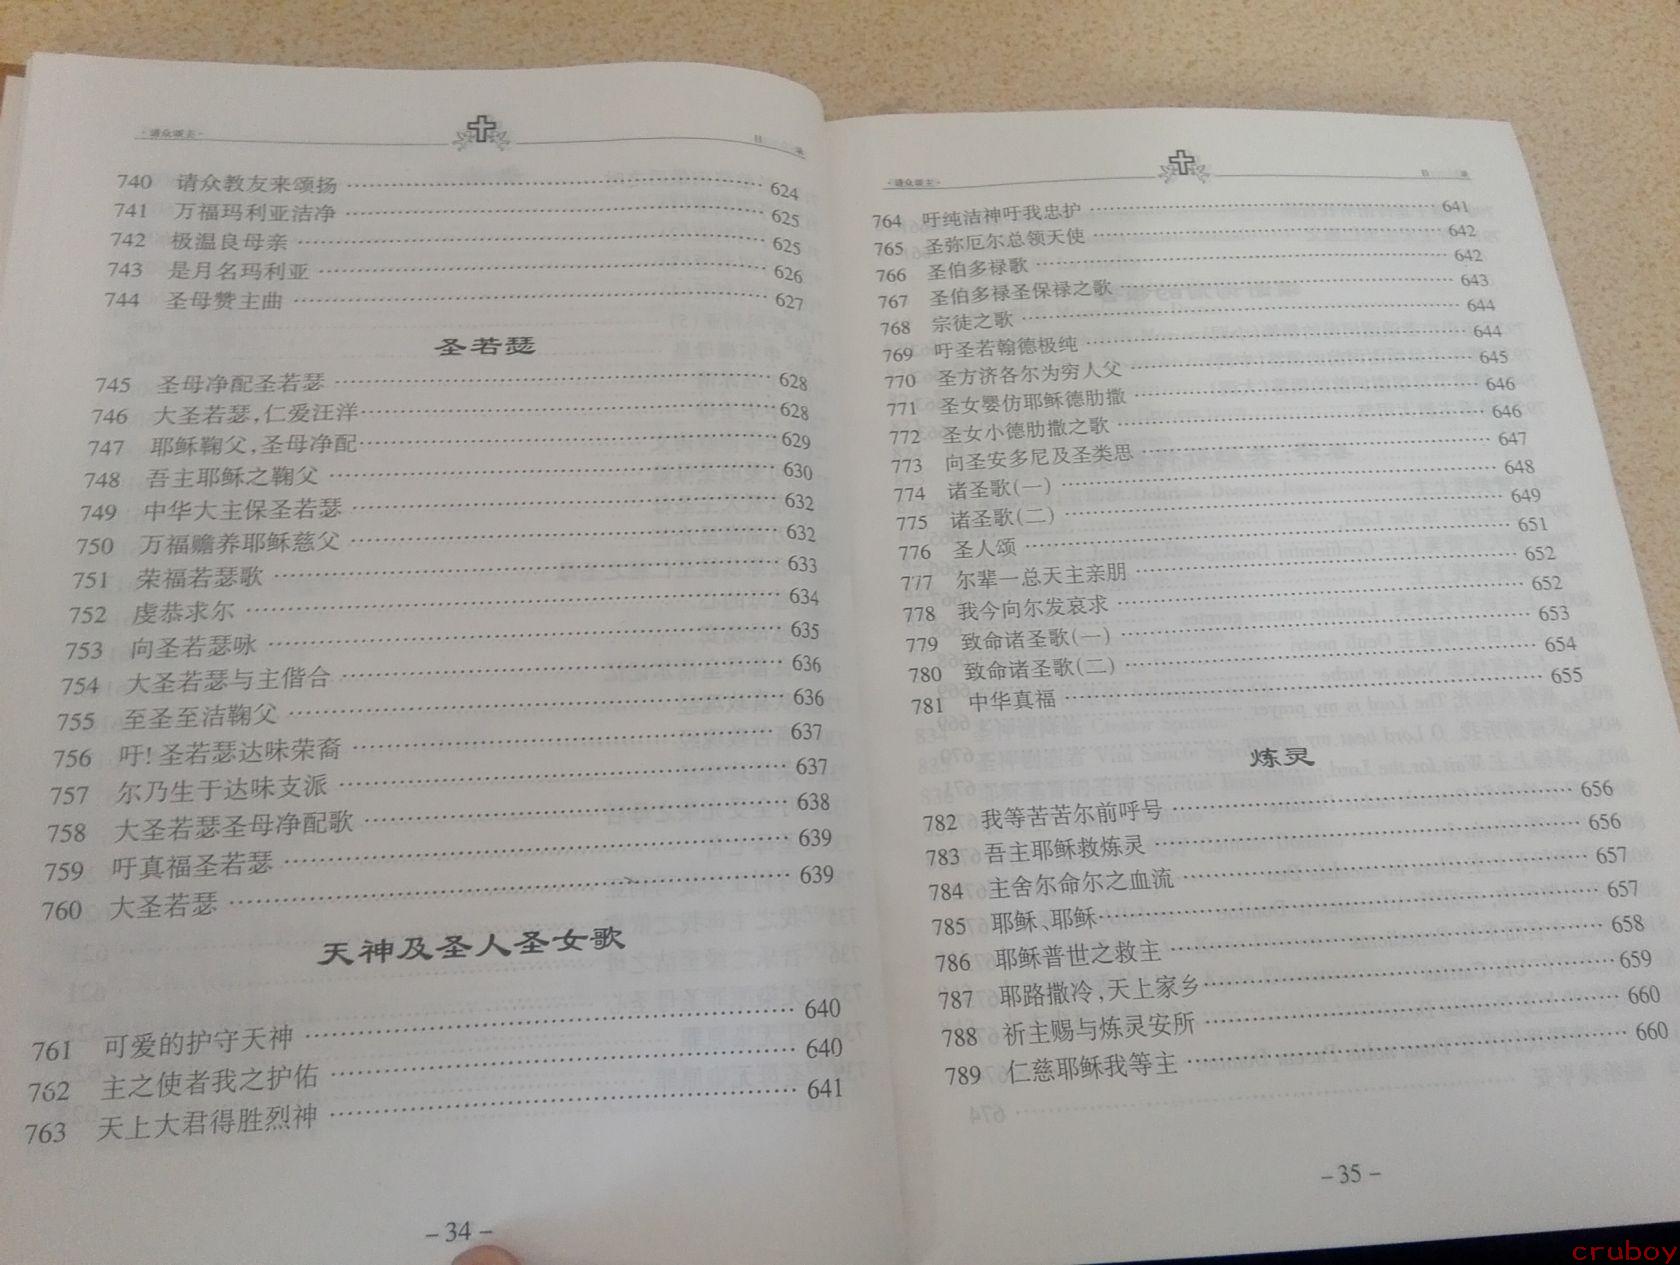 ·请众颂主·
目 录
740 请众教友来颂扬 624
741 万福玛利亚洁净 625
742 极温良母亲 625
743 是月名玛利亚 626
744 圣母赞主曲 627
圣若瑟
745 圣母净配圣若瑟 628
746 大圣若瑟,仁爱汪洋 628
747 耶稣鞠父,圣母净配 629
748 吾主耶稣之鞠父 630
749 中华大主保圣若瑟 632
750 万福赡养耶稣慈父 632
751 荣福若瑟歌 633
752 虔恭求尔 634
753 向圣若瑟咏 635
754 大圣若瑟与主偕合 636
755 至圣至洁鞠父 636
756 吁!圣若瑟达味荣裔 637
757 尔乃生于达味支派 637
758 大圣若瑟圣母净配歌 638
759 吁真福圣若瑟 639
760 大圣若瑟 639
天神及圣人圣女歌
761 可爱的护守天神 640
762 主之使者我之护佑 640
763 天上大君得胜烈神 641
–34–
·请众颂主·
目 录
764 吁纯洁神吁我忠护 641
765 圣弥厄尔总领天使 642
766 圣伯多禄歌 642
767 圣伯多禄圣保禄之歌 643
768 宗徒之歌 644
769 吁圣若翰德极纯 644
770 圣方济各尔为穷人父 645
771 圣女婴仿耶稣德肋撒 646
772 圣女小德肋撒之歌 646
773 向圣安多尼及圣类思 647
774 诸圣歌(一) 648
775 诸圣歌(二) 649
776 圣人颂 651
777 尔辈一总天主亲朋 652
778 我今向尔发哀求 652
779 致命诸圣歌(一) 653
780 致命诸圣歌(二) 654
781 中华真福 655
炼灵
782 我等苦苦尔前呼号 656
783 吾主耶稣救炼灵 656
784 主舍尔命尔之血流 657
785 耶稣、耶稣 657
786 耶稣普世之救主 658
787 耶路撒冷,天上家乡 659
788 祈主赐与炼灵安所 660
789 仁慈耶稣我等主 660
–35–
cruboy